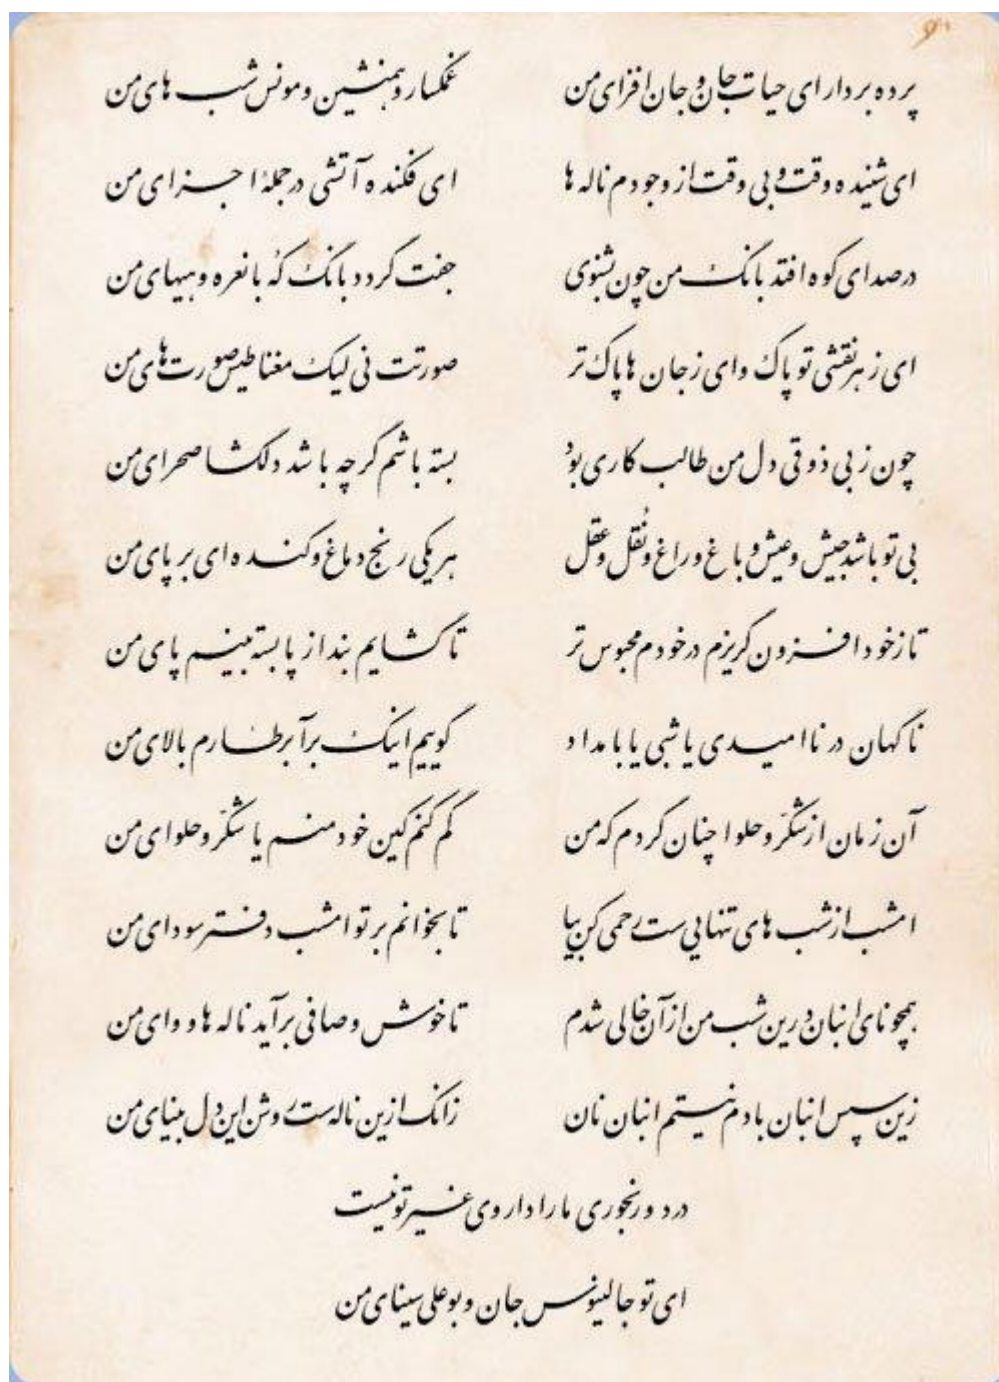 پرده بردار ای حیات جان و جان افزای من غمگسار و همنشین و مونس شب های من
ای شنیده وقت و بی وقت از وجودم ناله ها ای فکنده آتشی در جملهٔ اجزای من
در صدای کوه افتد بانگ من چون بشنوی جفت گردد بانگ کُه با نعره و هیهای من
ای ز هر نقشی تو پاک و ای ز جان ها پاک تر صورتت نی لیک مغناطیس صورت های من
چون ز بی ذوقی دل من طالب کاری بود بسته باشم گر چه باشد دلگشا صحرای من
بی تو باشد جیش و عیش و باغ و راغ و نُقل و عقل هر یکی رنج دماغ و کنده ای بر پای من
تا ز خود افزون گریزم در خودم محبوس تر تا گشایم بند از پا بسته بینم پای من
ناگهان در ناامیدی یا شبی یا بامداد گوییم اینک برآ بر طارم بالای من
آن زمان از شکّر و حلوا چنان گردم که من گم کنم کین خود منم یا شکّر و حلوای من
امشب از شب های تنهایی ست رحمی کن بیا تا بخوانم بر تو امشب دفتر سودای من
همچو نای انبان درین شب من از آن خالی شدم تا خوش و صافی برآید ناله ها و وای من
زین سپس انبان بادم نیستم انبان نان زانک ازین ناله ست روشن این دل بینای من
درد و رنجوری ما را داروی غیر تو نیست
ای تو جالینوس جان و بوعلی سینای من